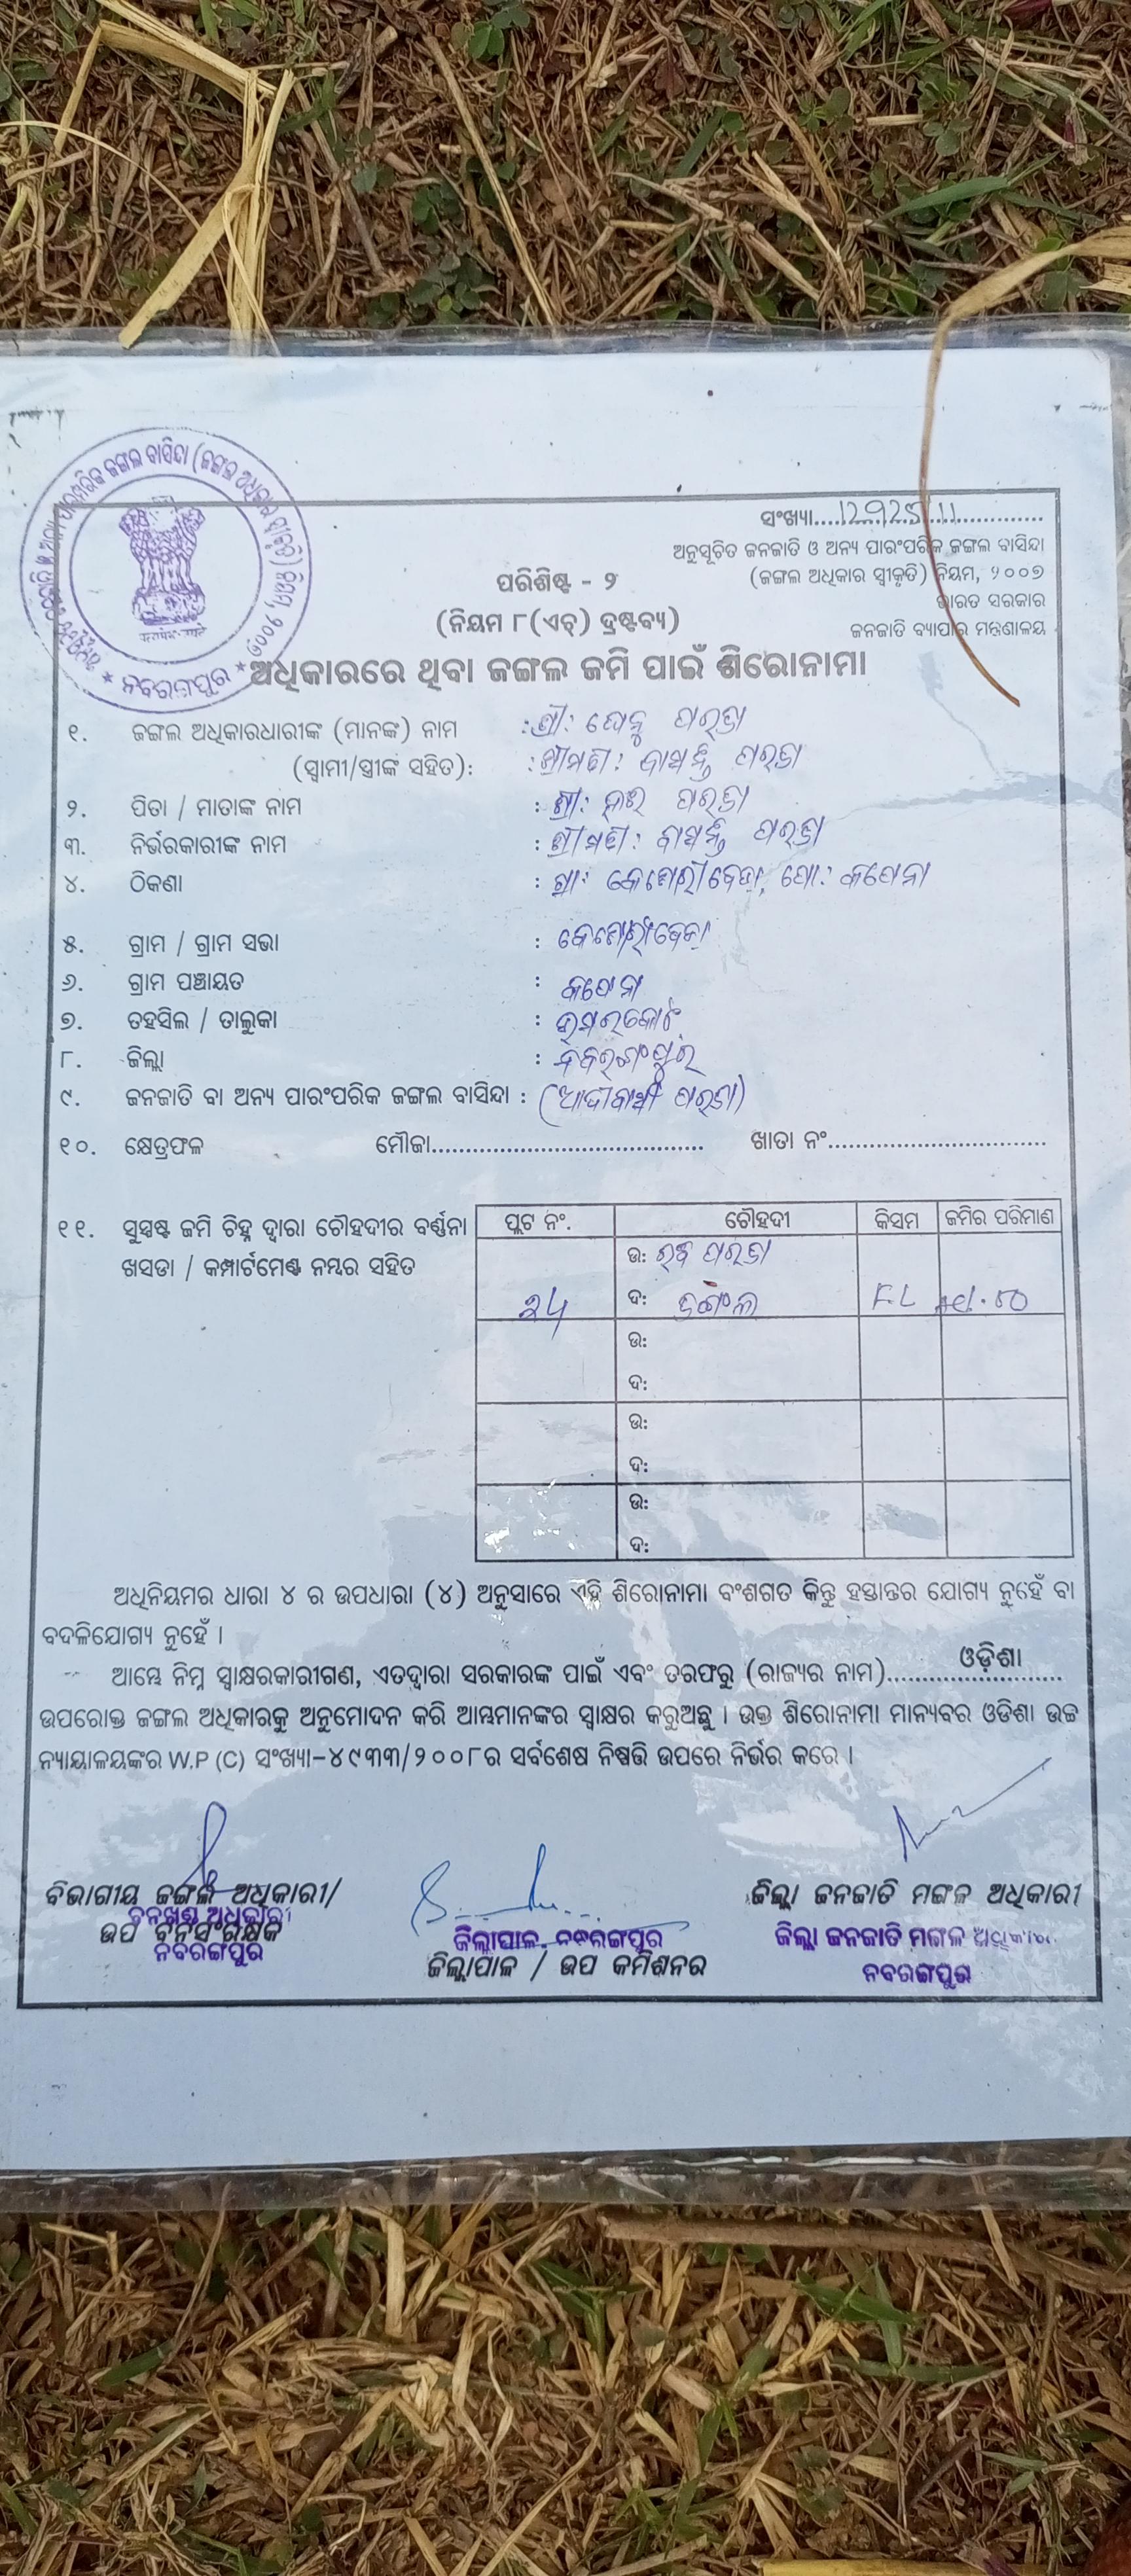 ସଂଖ୍ୟା....12925/11....
ଅନୁସୂଚିତ ଜନଜାତି ଓ ଅନ୍ୟ ପାରଂପରିକ ଜଙ୍ଗଲ ବାସିନ୍ଦା
(ଜଙ୍ଗଲ ଅଧିକାର ସ୍ୱୀକୃତି) ନିୟମ, ୨୦୦୭
ଭାରତ ସରକାର
ଜନଜାତି ବ୍ୟାପାର ମନ୍ତ୍ରଣାଳୟ
ପରିଶିଷ୍ଟ - ୨
(ନିୟମ ୮(ଏଚ୍) ଦ୍ରଷ୍ଟବ୍ୟ)
ନବରଙ୍ଗପୁର
ଅଧିକାରରେ ଥିବା ଜଙ୍ଗଲ ଜମି ପାଇଁ ଶିରୋନାମା
୧. ଜଙ୍ଗଲ ଅଧିକାରଧାରୀଙ୍କ (ମାନଙ୍କ) ନାମ : ଶ୍ରୀ: ଘେନୁ ପରଜା
(ସ୍ୱାମୀ/ସ୍ତ୍ରୀଙ୍କ ସହିତ): : ଶ୍ରୀମତୀ: ବାସନ୍ତି ପରଜା
୨. ପିତା / ମାତାଙ୍କ ନାମ : ଶ୍ରୀ: ପରଜା
୩. ନିର୍ଭରକାରୀଙ୍କ ନାମ : ଶ୍ରୀମତୀ: ବାସନ୍ତି ପରଜା
୪. ଠିକଣା : ଗ୍ରା: ପୋ: କପେନା
୫. ଗ୍ରାମ / ଗ୍ରାମ ସଭା :
୬. ଗ୍ରାମ ପଞ୍ଚାୟତ : କପେନା
୭. ତହସିଲ / ତାଲୁକା : ଉମରକୋଟ
୮. ଜିଲ୍ଲା : ନବରଙ୍ଗପୁର
୯. ଜନଜାତି ବା ଅନ୍ୟ ପାରଂପରିକ ଜଙ୍ଗଲ ବାସିନ୍ଦା : (ଆଦୀବାସୀ ପରଜା)
୧୦. କ୍ଷେତ୍ରଫଳ ମୌଜା........ ଖାତା ନଂ........
୧୧. ସୁସ୍ପଷ୍ଟ ଜମି ଚିହ୍ନ ଦ୍ୱାରା ଚୌହଦୀର ବର୍ଣ୍ଣନା
ଖସଡା / କମ୍ପାର୍ଟମେଣ୍ଟ ନମ୍ବର ସହିତ
ପ୍ଲଟ ନଂ. ଚୌହଦୀ କିସମ ଜମିର ପରିମାଣ
ଉ: ପରଜା
ଦ: ଜଙ୍ଗଲ F.L
ଉ:
ଦ:
ଉ:
ଦ:
ଉ:
ଦ:
ଅଧିନିୟମର ଧାରା ୪ ର ଉପଧାରା (୪) ଅନୁସାରେ ଏହି ଶିରୋନାମା ବଂଶଗତ କିନ୍ତୁ ହସ୍ତାନ୍ତର ଯୋଗ୍ୟ ନୁହେଁ ବା
ବଦଳିଯୋଗ୍ୟ ନୁହେଁ ।
ଆମ୍ଭେ ନିମ୍ନ ସ୍ୱାକ୍ଷରକାରୀଗଣ, ଏତଦ୍ୱାରା ସରକାରଙ୍କ ପାଇଁ ଏବଂ ତରଫରୁ (ରାଜ୍ୟର ନାମ)....ଓଡ଼ିଶା....
ଉପରୋକ୍ତ ଜଙ୍ଗଲ ଅଧିକାରକୁ ଅନୁମୋଦନ କରି ଆମ୍ଭମାନଙ୍କର ସ୍ୱାକ୍ଷର କରୁଅଛୁ । ଉକ୍ତ ଶିରୋନାମା ମାନ୍ୟବର ଓଡିଶା ଉଚ୍ଚ
ନ୍ୟାୟାଳୟଙ୍କର W.P (C) ସଂଖ୍ୟା-୪୯୩୩/୨୦୦୮ର ସର୍ବଶେଷ ନିଷ୍ପତ୍ତି ଉପରେ ନିର୍ଭର କରେ ।
ବିଭାଗୀୟ ଜଙ୍ଗଲ ଅଧିକାରୀ/
ବନଖଣ୍ଡ ଅଧିକାରୀ
ଉପ ବନସଂରକ୍ଷକ
ନବରଙ୍ଗପୁର
ଜିଲ୍ଲାପାଳ, ନବରଙ୍ଗପୁର
ଜିଲ୍ଲାପାଳ / ଉପ କମିଶନର
ଜିଲ୍ଲା ଜନଜାତି ମଙ୍ଗଳ ଅଧିକାରୀ
ଜିଲ୍ଲା ଜନଜାତି ମଙ୍ଗଳ ଅଧିକାରୀ
ନବରଙ୍ଗପୁର